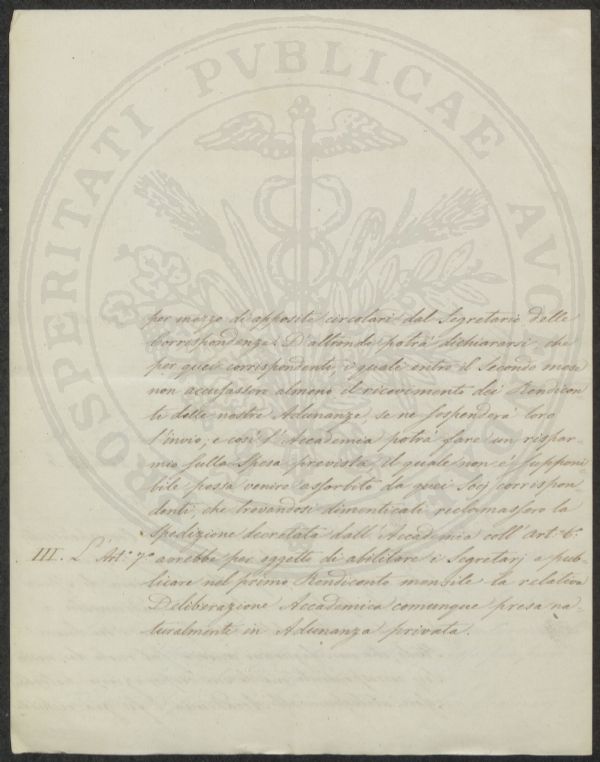 PROSPERITATI PVBLICAE AVGENDAE
per mezzo di apposite circolari dal Segretario delle
Corrispondenze. D'altronde potrà dichiararsi che
per quei corrispondenti, i quali entro il Secondo mese
non accusassero almeno il ricevimento dei Rendicon
ti delle nostre Adunanze, se ne sospenderà loro
l'invio; e così l'Accademia potrà fare un rispar-
mio sulla Spesa prevista, il quale non è supponi
bile possa venire assorbito da quei Socj corrispon-
denti, che trovandosi dimenticati reclamassero la
Spedizione decretata dall'Accademia coll'Art.º 6.º
III. L'Art.º 7.º avrebbe per oggetto di abilitare i Segretarj a pub-
blicare nel primo Rendiconto mensile la relativa
Deliberazione Accademica comunque presa na-
turalmente in Adunanza privata.